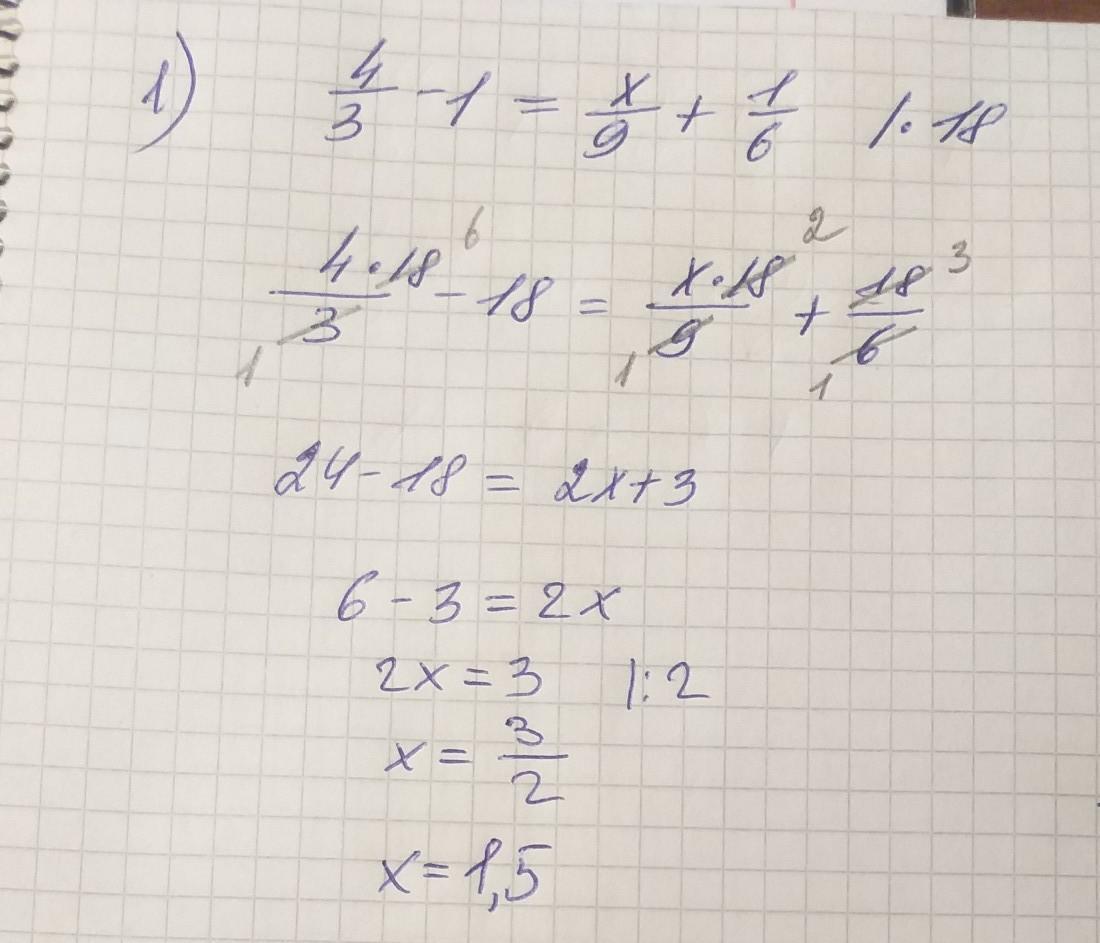 1) 4/3 - 1 = x/9 + 1/6 |· 18
4·18⁶/3₁ - 18 = x·18²/9₁ + 18³/6₁
24 - 18 = 2x + 3
6 - 3 = 2x
2x = 3 |: 2
x = 3/2
x = 1,5